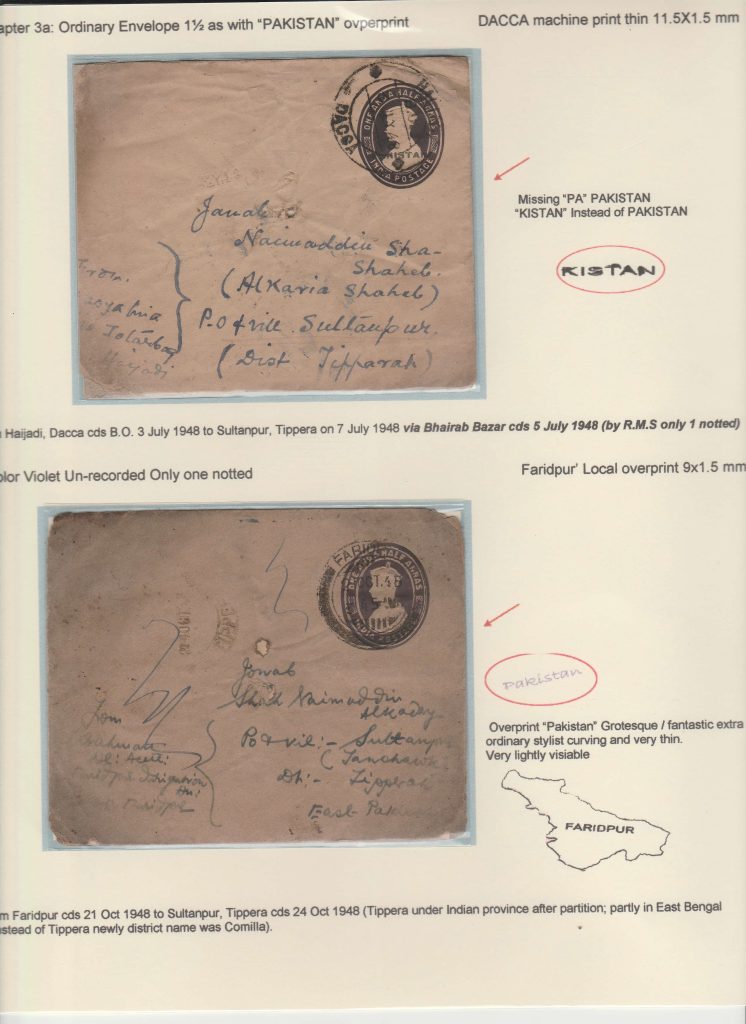 apter 3a: Ordinary Envelope 1½ as with "PAKISTAN" ovperprint
DACCA machine print thin 11.5X1.5 mm
DACCA
ONE AND A HALF ANNAS
KISTAN
INDIA POSTAGE
Missing "PA" PAKISTAN
"KISTAN" Instead of PAKISTAN
KISTAN
Janab
Naimaddin Sha-
Shaheb.
(AlKaria Shaheb)
P.O & vill Sultanpur.
(Dist Tipparah)
From.
Haijadi
Haijadi, Dacca cds B.O. 3 July 1948 to Sultanpur, Tippera on 7 July 1948 via Bhairab Bazar cds 5 July 1948 (by R.M.S only 1 notted)
olor Violet Un-recorded Only one notted
Faridpur' Local overprint 9x1.5 mm
FARI
ONE AND A HALF ANNAS
Pakistan
Overprint "Pakistan" Grotesque / fantastic extra
ordinary stylist curving and very thin.
Very lightly visiable
FARIDPUR
Jonab
Shah Naimaddin
Alkadry
Po & vil:- Sultanpur
Dt:- Tipperah
East- Paki
From
Rahman
m Faridpur cds 21 Oct 1948 to Sultanpur, Tippera cds 24 Oct 1948 (Tippera under Indian province after partition; partly in East Bengal
nstead of Tippera newly district name was Comilla).